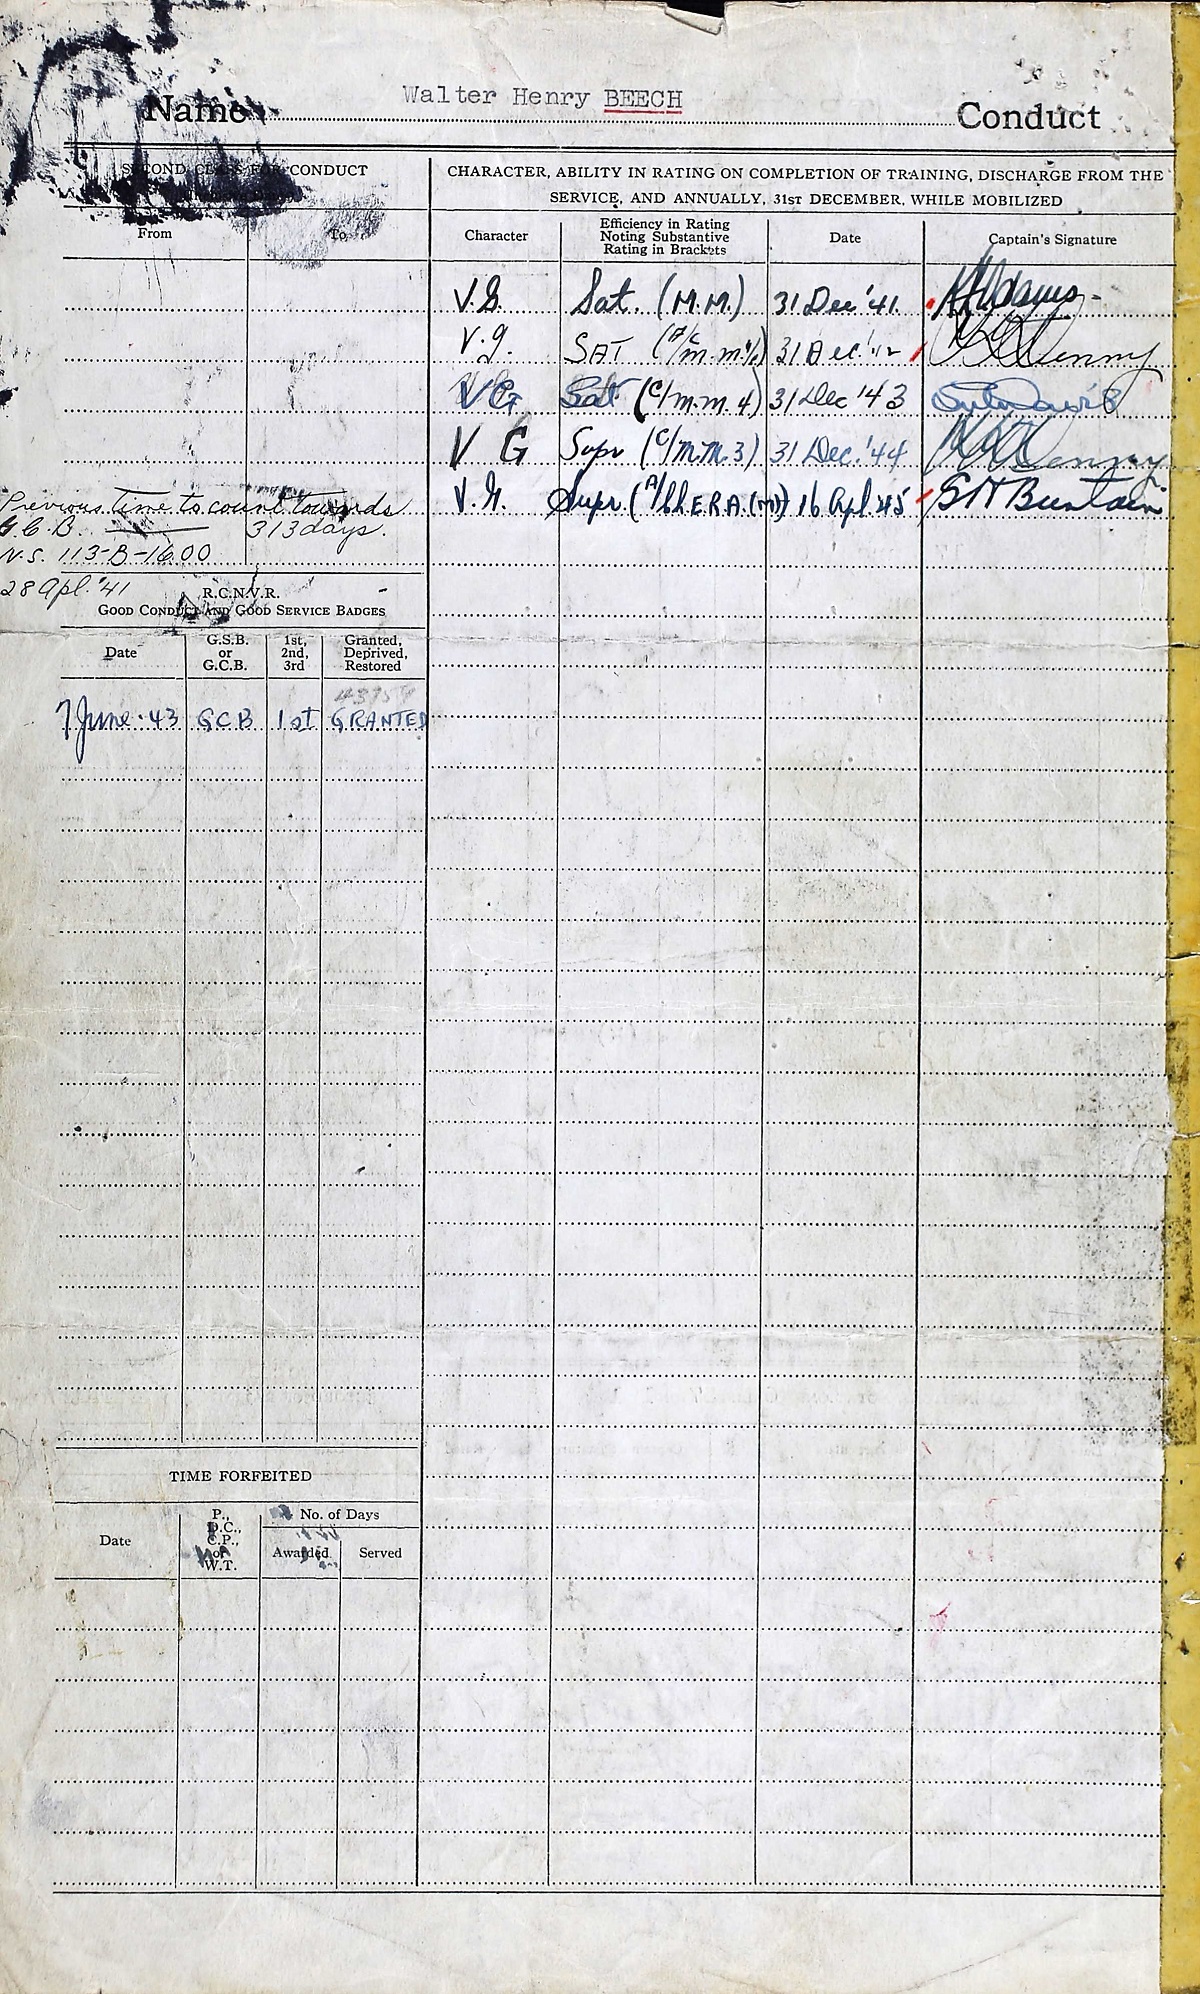 Name Walter Henry BEECH Conduct
SECOND CLASS FOR CONDUCT
From To
CHARACTER, ABILITY IN RATING ON COMPLETION OF TRAINING, DISCHARGE FROM THE
SERVICE, AND ANNUALLY, 31ST DECEMBER, WHILE MOBILIZED
Character
Efficiency in Rating
Noting Substantive
Rating in Brackets
Date
Captain's Signature
V.G. Sat. (M.M.) 31 Dec '41
V.g. SAT 31 Dec. '42 Denny
VG Sat (C/m.m. 4) 31 Dec '43
V G Supr (C/M.M. 3) 31 Dec. '44 Denny
V.G. Supr. 16 Apl. 45
Previous time to count towards
G.C.B. 313 days.
N.S. 113-B-1600
28 Apl. '41
R.C.N.V.R.
GOOD CONDUCT AND GOOD SERVICE BADGES
Date
G.S.B.
or
G.C.B.
1st,
2nd,
3rd
Granted,
Deprived,
Restored
7 June. 43 GCB 1st GRANTED
TIME FORFEITED
Date
P.,
D.C.,
C.P.,
or
W.T.
No. of Days
Awarded Served